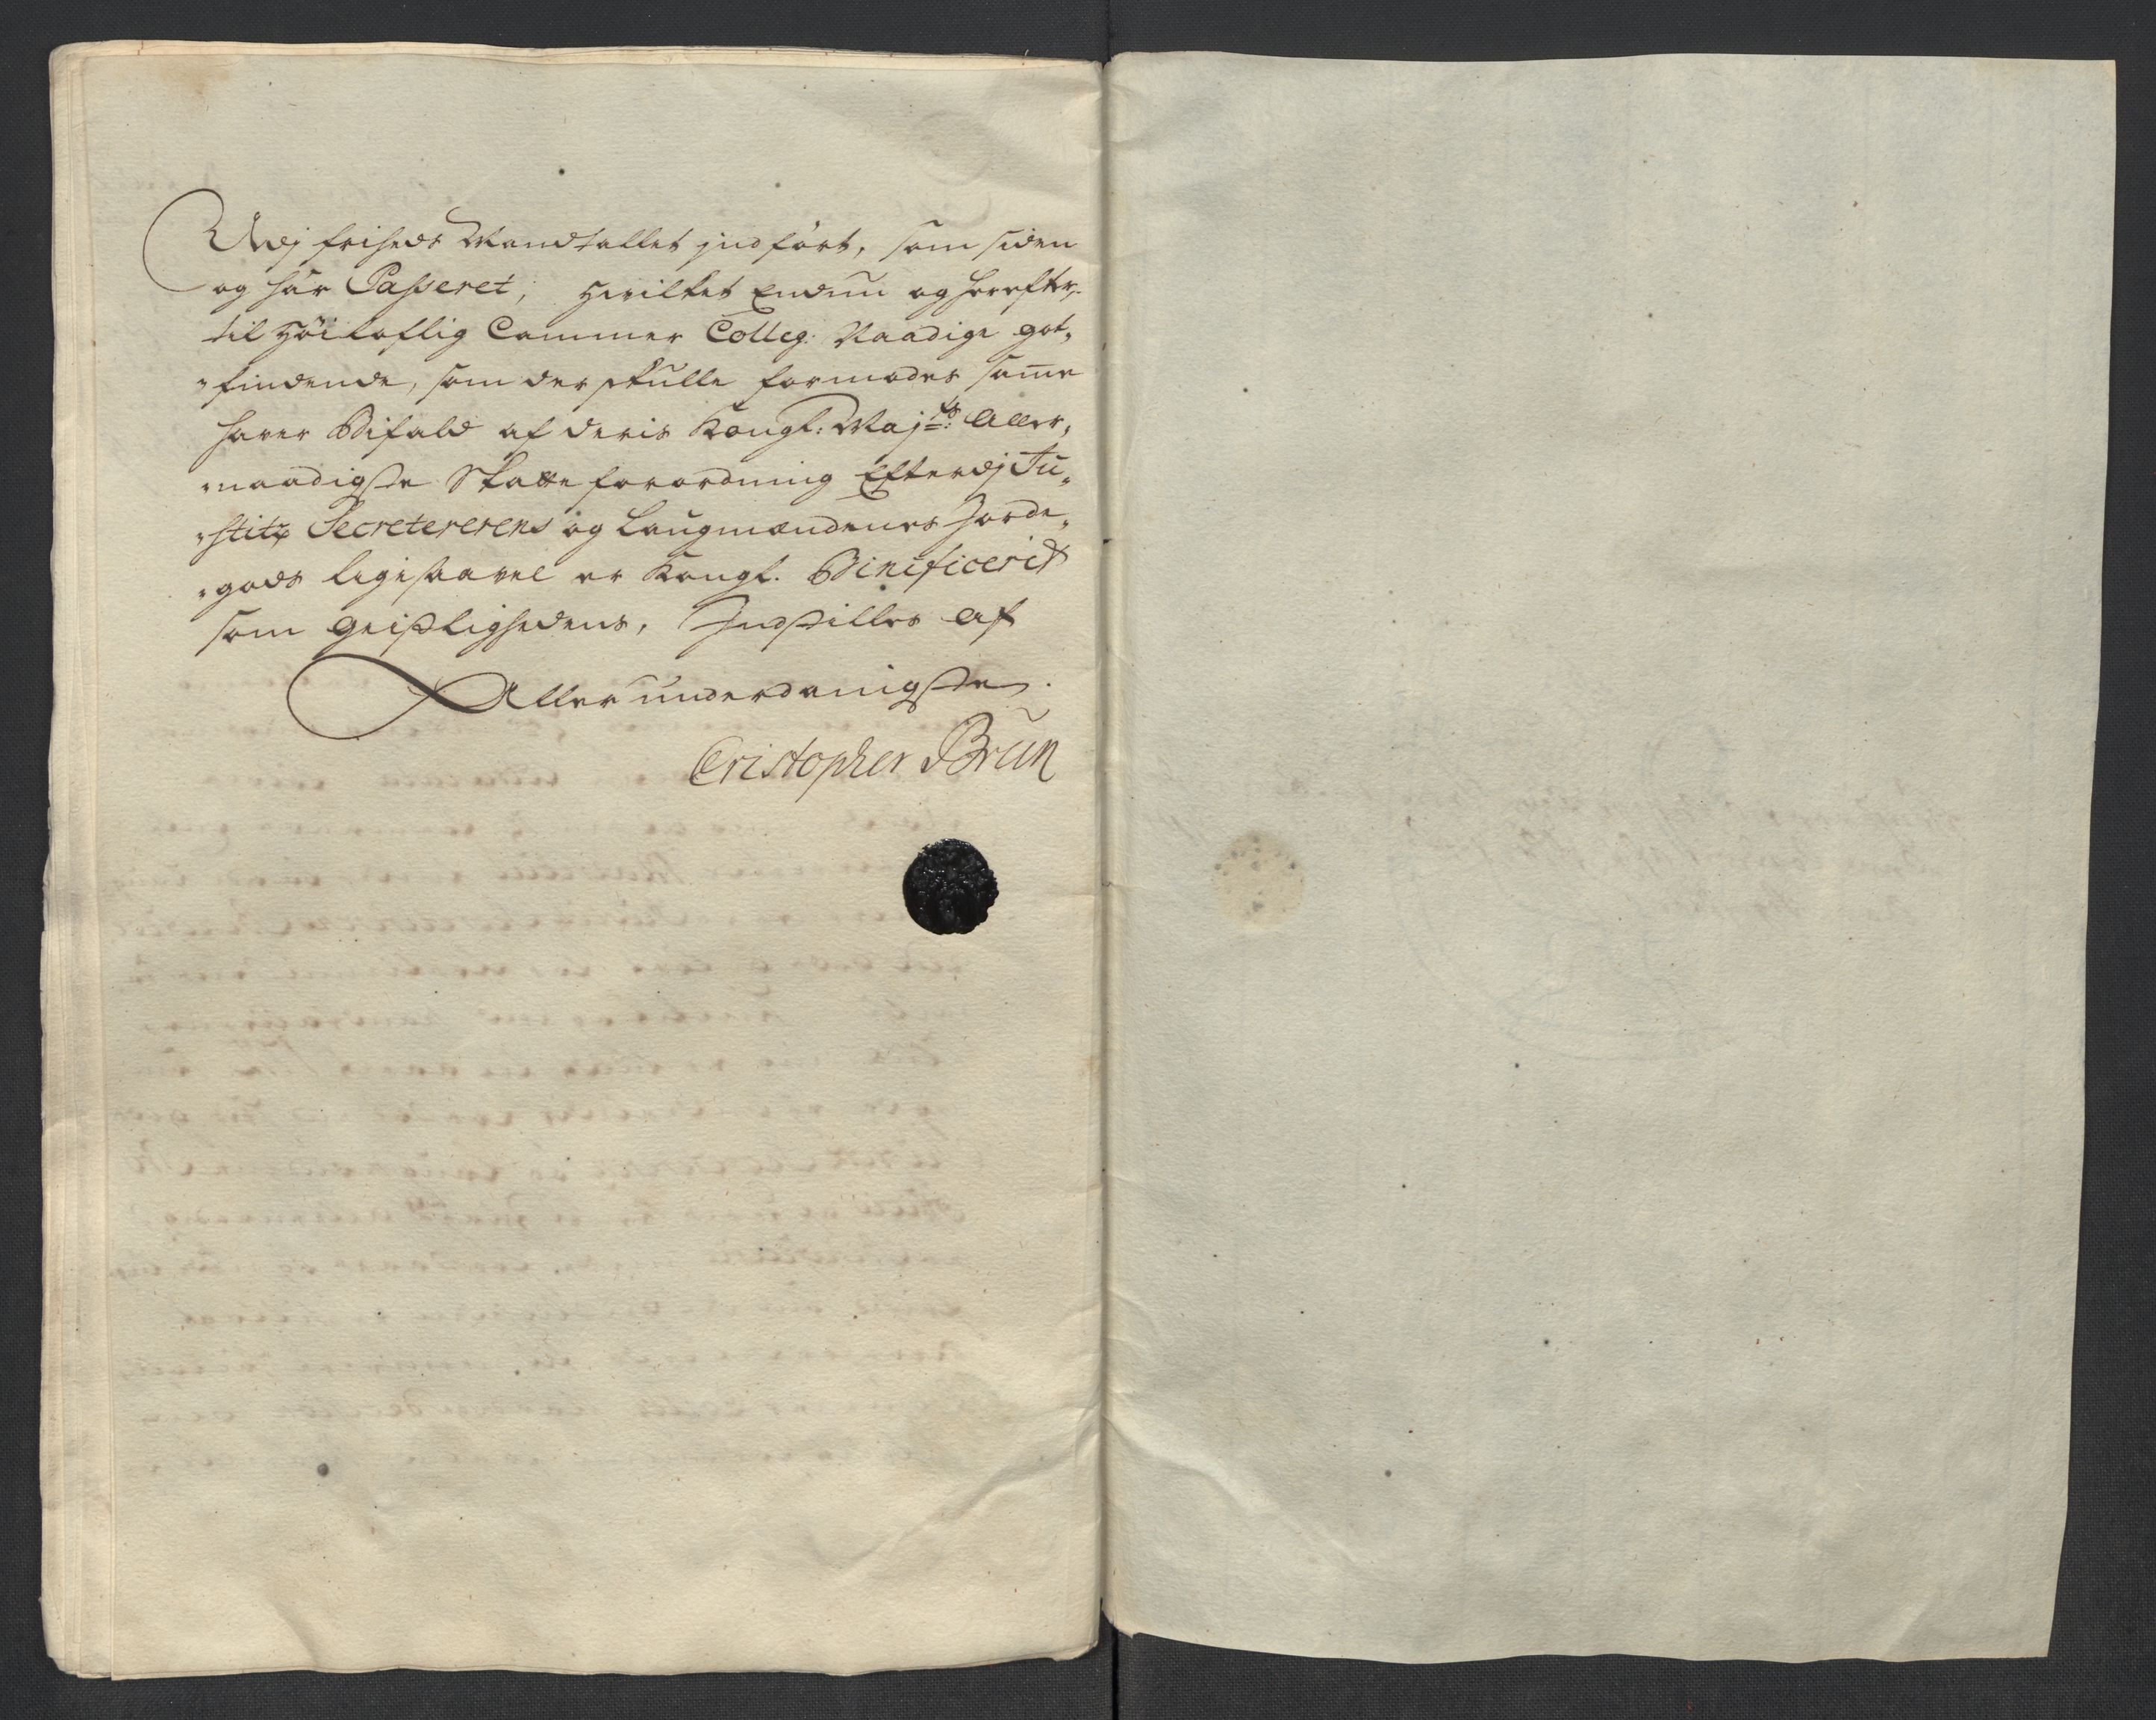 Udj friheds Mandtallet jndført, som siden
og har Passeret, hvilket Endnu og herefter
til Høi Loflig Cammer Colleg: Naadige got„
„findende, som der skulle formodes samme
haver Bifald af deris Kongl: Maj:ts Aller„
„naadigste Skatte forordning Efterdj Ju„
„stitz Secretererens og Laugmændenes Jorde„
„gods ligesaavel er Kongl. Binificerit
som geistlighedens, Indstilles af
Allerunderdanigste
Cristopher Brun